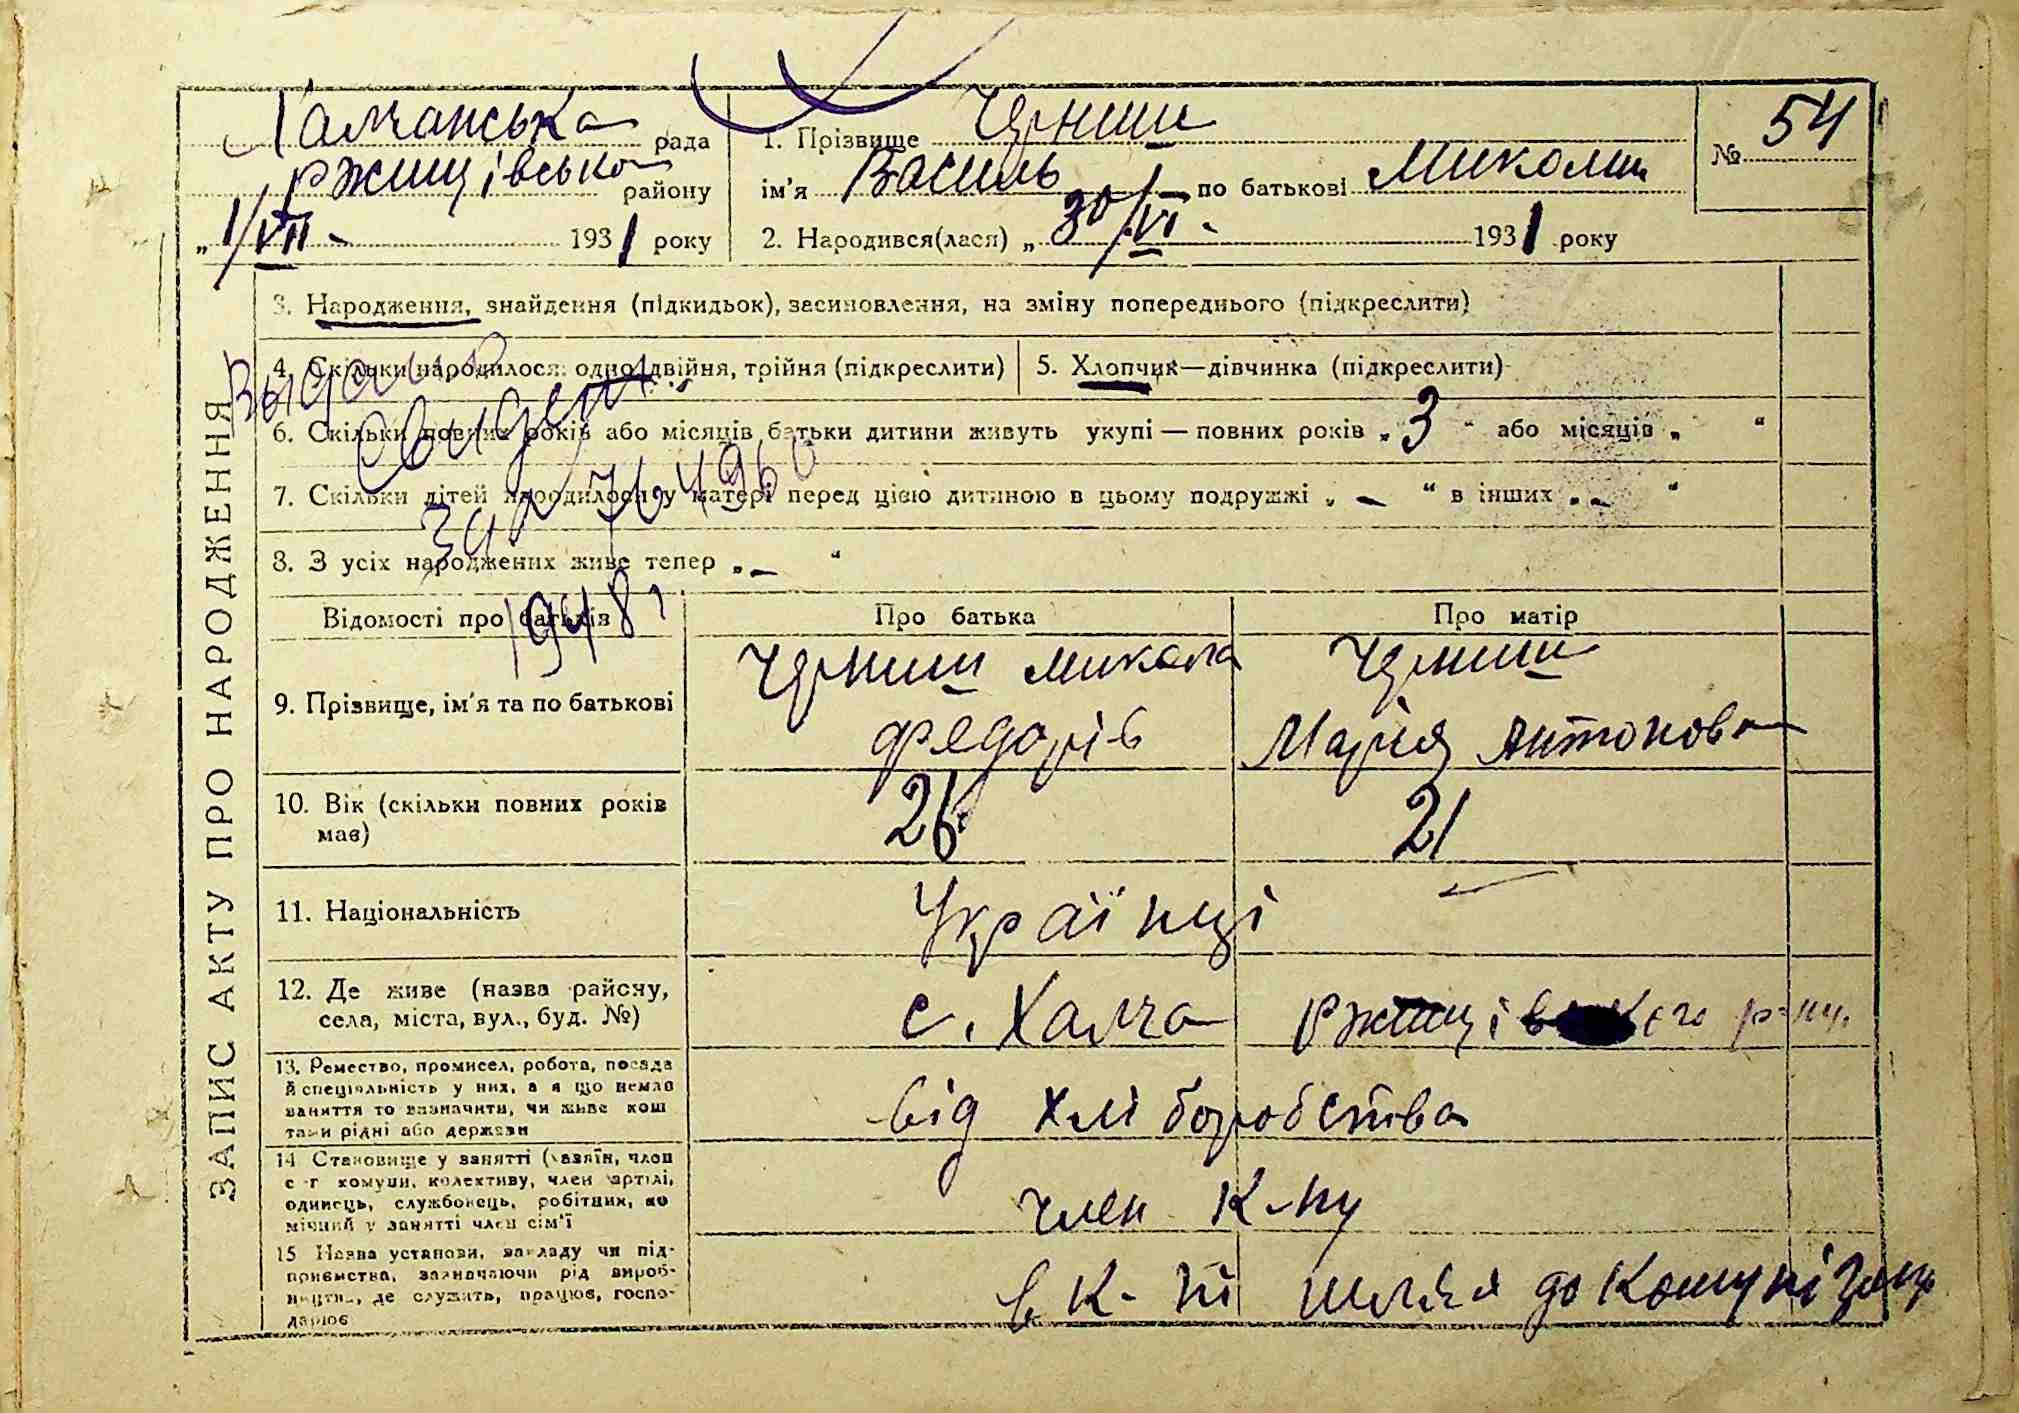 Халчанська рада
Ржищівського району
„1/VII - 1931 року
1. Прізвище Черниш
ім'я Василь по батькові Миколин
№ 54
2. Народився(лася) „30/VI - 1931 року
ЗАПИС АКТУ ПРО НАРОДЖЕННЯ
3. Народження, знайдення (підкидьок), засиновлення, на зміну попереднього (підкреслити)
4. Скільки народилося: одно, двійня, трійня (підкреслити)
5. Хлопчик—дівчинка (підкреслити)
6. Скільки повних років або місяців батьки дитини живуть укупі — повних років „3“ або місяців „ “
7. Скільки дітей народилося у матері перед цією дитиною в цьому подружжі „-“ в інших „-“
8. З усіх народжених живе тепер „-“
1948
Відомості про батьків
Про батька
Про матір
9. Прізвище, ім'я та по батькові
Черниш Микола
Федорів
Черниш
Марія Антонова
10. Вік (скільки повних років
має)
26
21
11. Національність
Українці
12. Де живе (назва району,
села, міста, вул., буд. №)
с. Халча Ржищівського р-ну.
13. Ремество, промисел, робота, посада
й спеціяльність у них, а я що немає
заняття то зазначити, чи живе кош
тами рідні або держави
від хліборобства
14 Становище у занятті (хазяїн, член
с-г комуни, колективу, член артілі,
одинець, службовець, робітник, по
мічний у занятті член сім'ї
член к-пу
15 Назва установи, закладу чи під-
приємства, зазначаючи рід вироб-
ництва, де служить, працює, госпо-
дарює
в к-пі шлях до комунізму